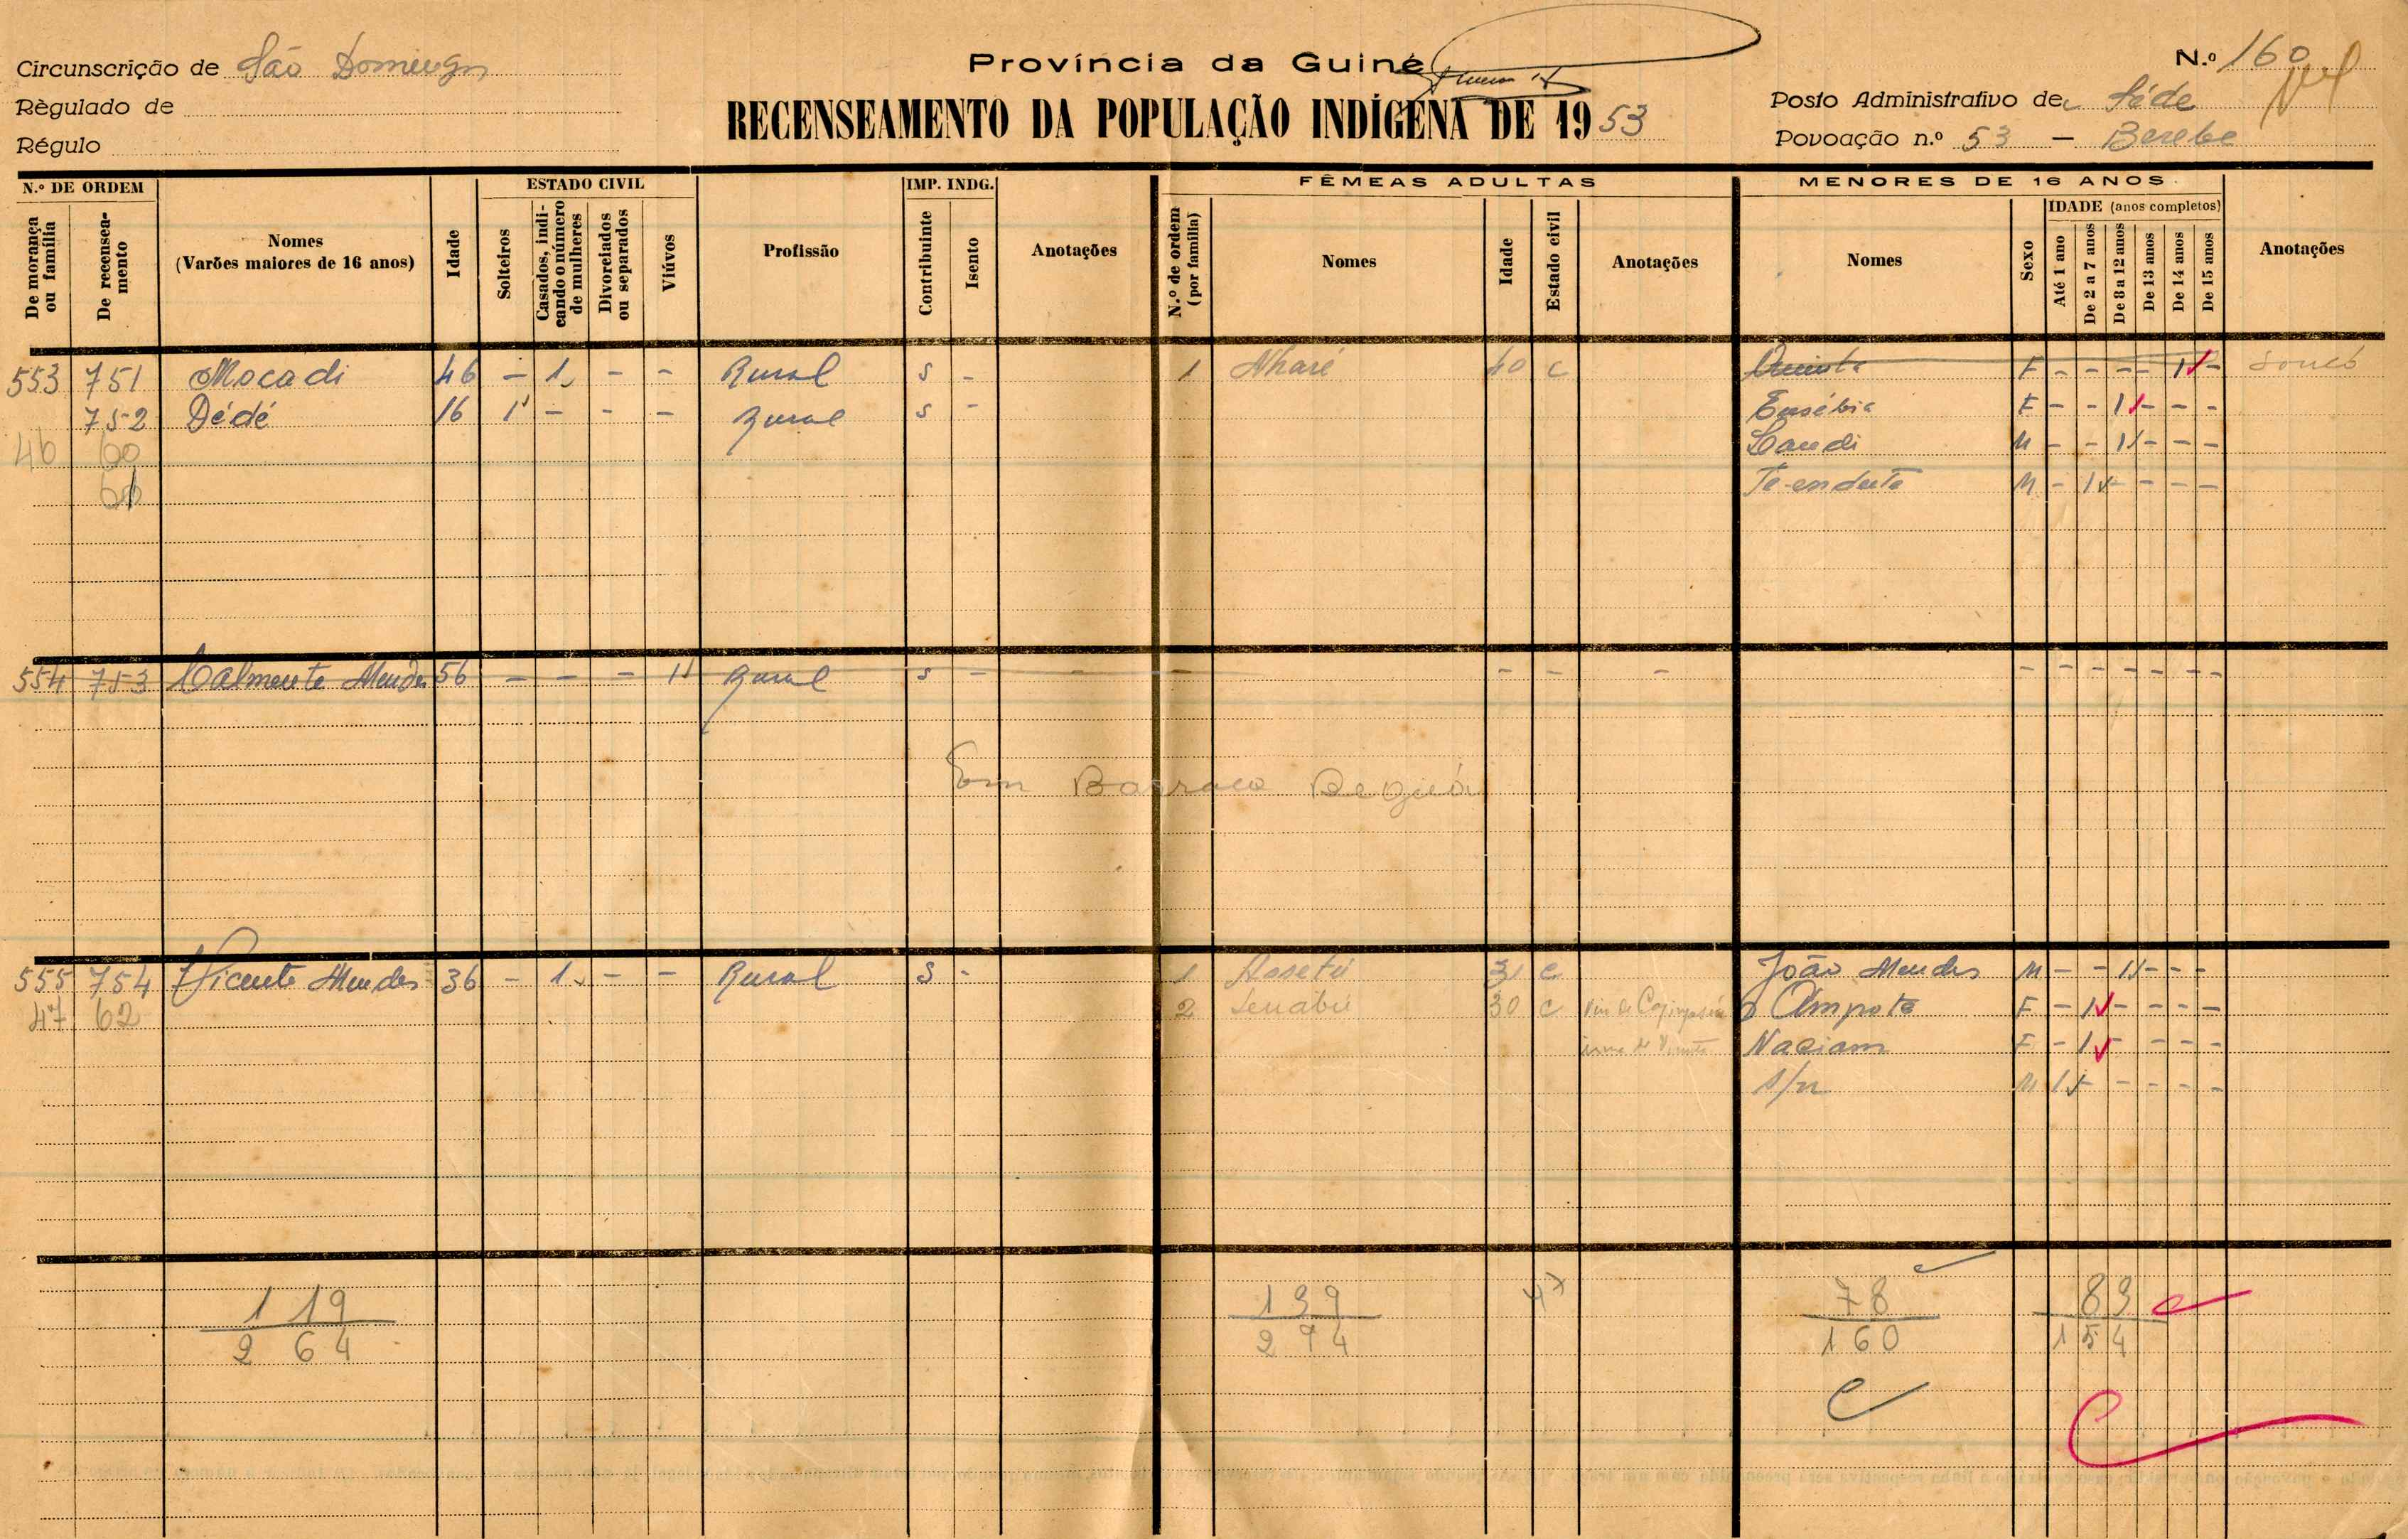 Circunscrição de São Domingos
Règulado de
Régulo
Província da Guiné
RECENSEAMENTO DA POPULAÇÃO INDÍGENA DE 1953
N.º 160
Posto Administrativo de Séde
Povoação n.º 53 — Berebe
N.º DE ORDEM
De morança ou família
De recenseamento
Nomes
(Varões maiores de 16 anos)
Idade
ESTADO CIVIL
Solteiros
Casados, indicando o número de mulheres
Divorciados ou separados
Viúvos
Profissão
IMP. INDG.
Contribuinte
Isento
Anotações
FÊMEAS ADULTAS
N.º de ordem (por família)
Nomes
Idade
Estado civil
Anotações
MENORES DE 16 ANOS
Nomes
Sexo
IDADE (anos completos)
Até 1 ano
De 2 a 7 anos
De 8 a 12 anos
De 13 anos
De 14 anos
De 15 anos
Anotações
553 751 Mocadi 46 – 1 – – Rural S – 1 Nharé 40 C F – – – – 1 –
752 Dédé 16 1 – – – Rural S – Eusébia F – – 1 – – –
46 60 Candi M – – 1 – – –
61 M – 1 – – – –
554 753 Calmente Mendes 56 – – – 1 Rural S – – – – – – – – – – – – –
Em Barraca
555 754 Vicente Mendes 36 – 1 – – Rural S – 1 Assetú 31 C João Mendes M – – 1 – – –
47 62 2 Senabú 30 C Ampota F – 1 – – – –
Naciam F – 1 – – – –
s/n M 1 – – – – –
119 139 47 78 83
264 274 160 154